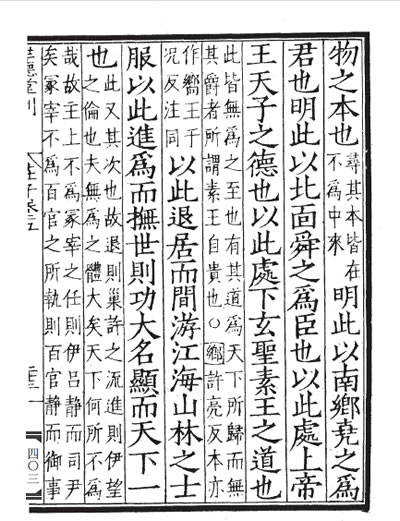 物之本也尋其本皆在
不為中來
明此以南鄉堯之為
君也明此以北面舜之為臣也以此處上帝
王天子之德也以此處下玄聖素王之道也
此皆無為之至也有其道為天下所歸而無
其爵者所謂素王自貴也○鄉許亮反本亦
作嚮王于
况反注同
以此退居而間游江海山林之士
服以此進為而撫世則功大名顯而天下一
也
此又其次也故退則巢許之流進則伊望
之倫也夫無為之體大矣天下何所不為
哉故主上不為冢宰之任則伊呂靜而司尹
矣冢宰不為百官之所執則百官靜而御事
世德堂刊
莊子卷五
四〇三